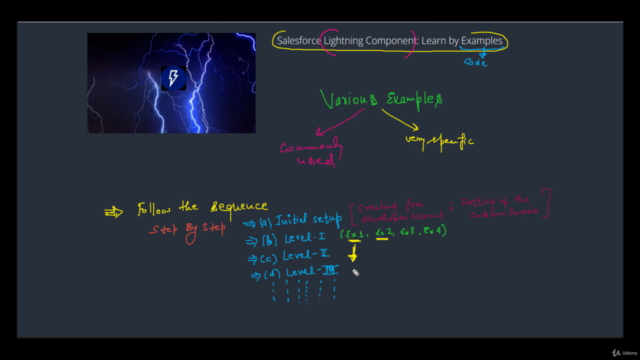 Salesforce Lightning Component: Learn by Examples
code
Various Examples
commonly used
very specific
Follow the sequence
Step By Step
(a) Initial setup [Creating free developer account ; Setting up the custom domain]
(b) Level-I (Ex1, Ex2, Ex3, Ex4)
(c) Level-II
(d) Level-III
Udemy